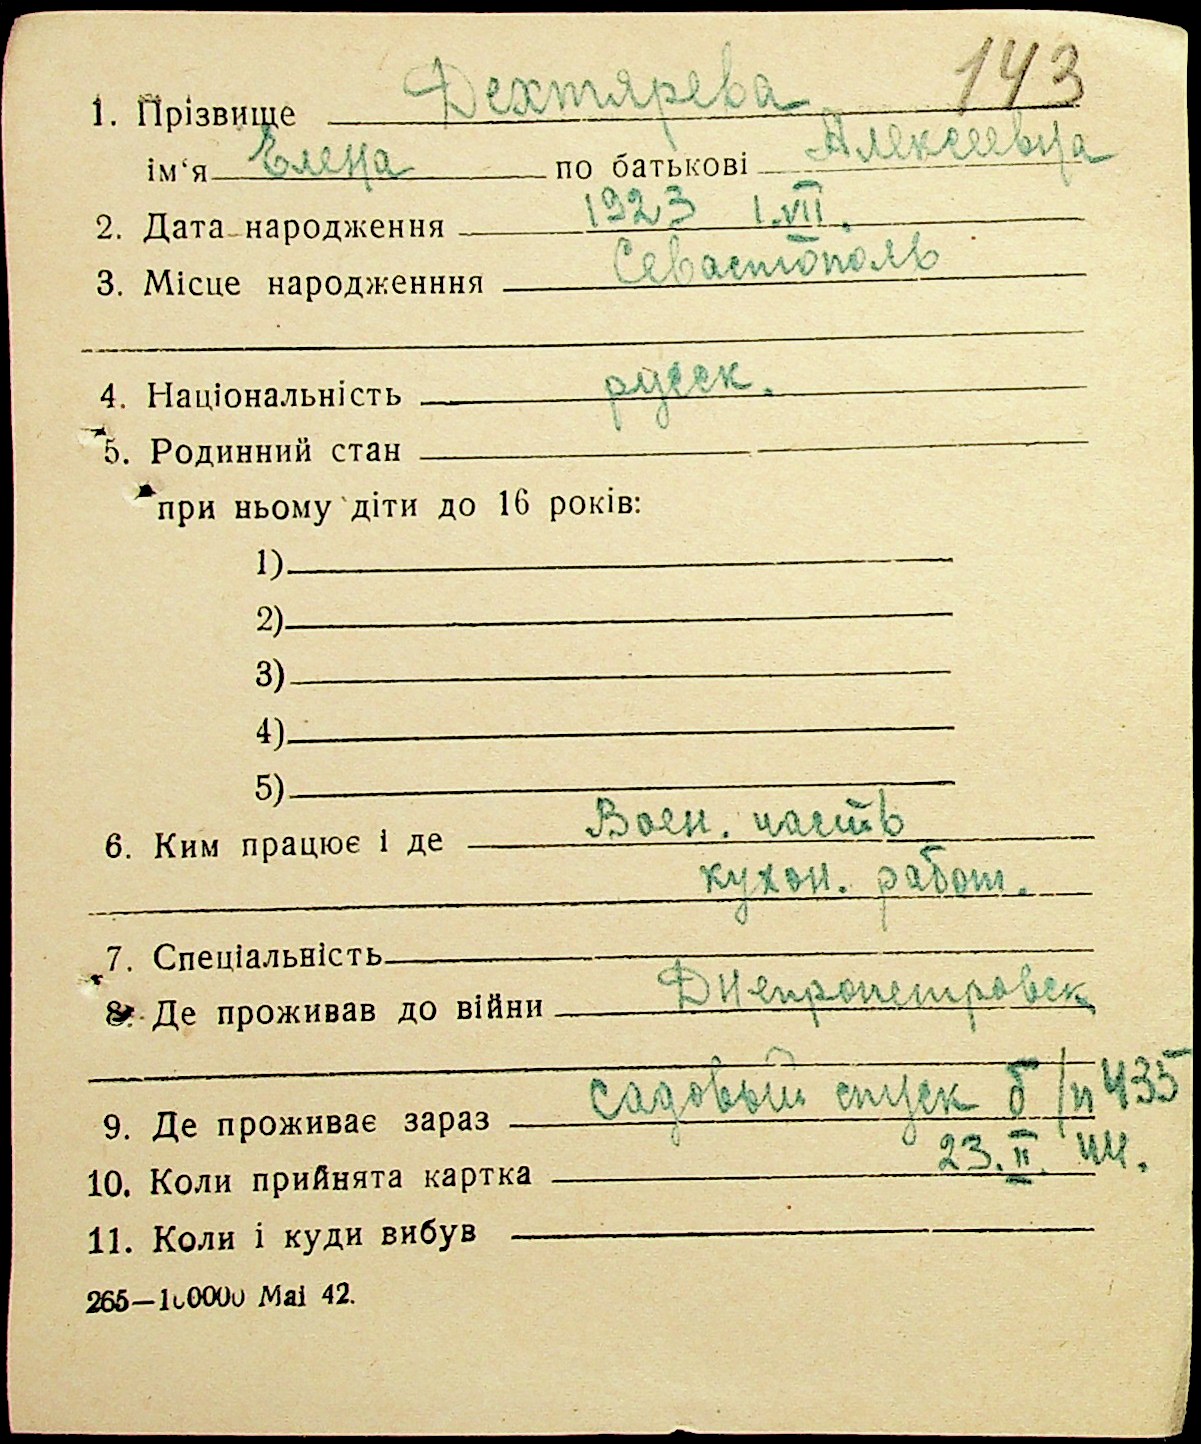 143
1. Прізвище Дехтярева
ім‘я Елена по батькові Алексеевна
2. Дата народження 1923 1.VII.
3. Місце народженння Севастополь
4. Національність русск.
5. Родинний стан
при ньому діти до 16 років:
1)
2)
3)
4)
5)
6. Ким працює і де Воен. часть
кухон. работ.
7. Спеціальність
8. Де проживав до війни Днепропетровск
9. Де проживає зараз садовый спуск б/н 435
10. Коли прийнята картка 23.II.44.
11. Коли і куди вибув
265—100000 Mai 42.